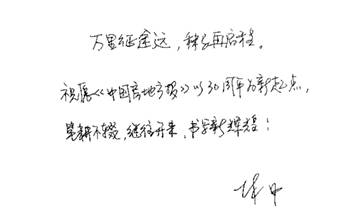 万里征途远，秣马再启程。
祝愿《中国房地产报》以30周年为新起点，
笔耕不辍，继往开来，书写新辉煌！